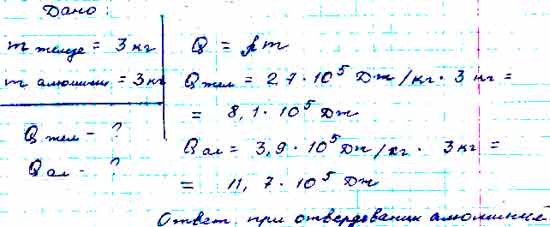 Дано:
m железа = 3 кг
m алюминия = 3 кг
Q жел - ?
Q ал - ?
Q = λm
Q жел = 2,7 · 10⁵ Дж/кг · 3 кг =
= 8,1 · 10⁵ Дж
Q ал = 3,9 · 10⁵ Дж/кг · 3 кг =
= 11,7 · 10⁵ Дж
Ответ. при отвердовании алюминия